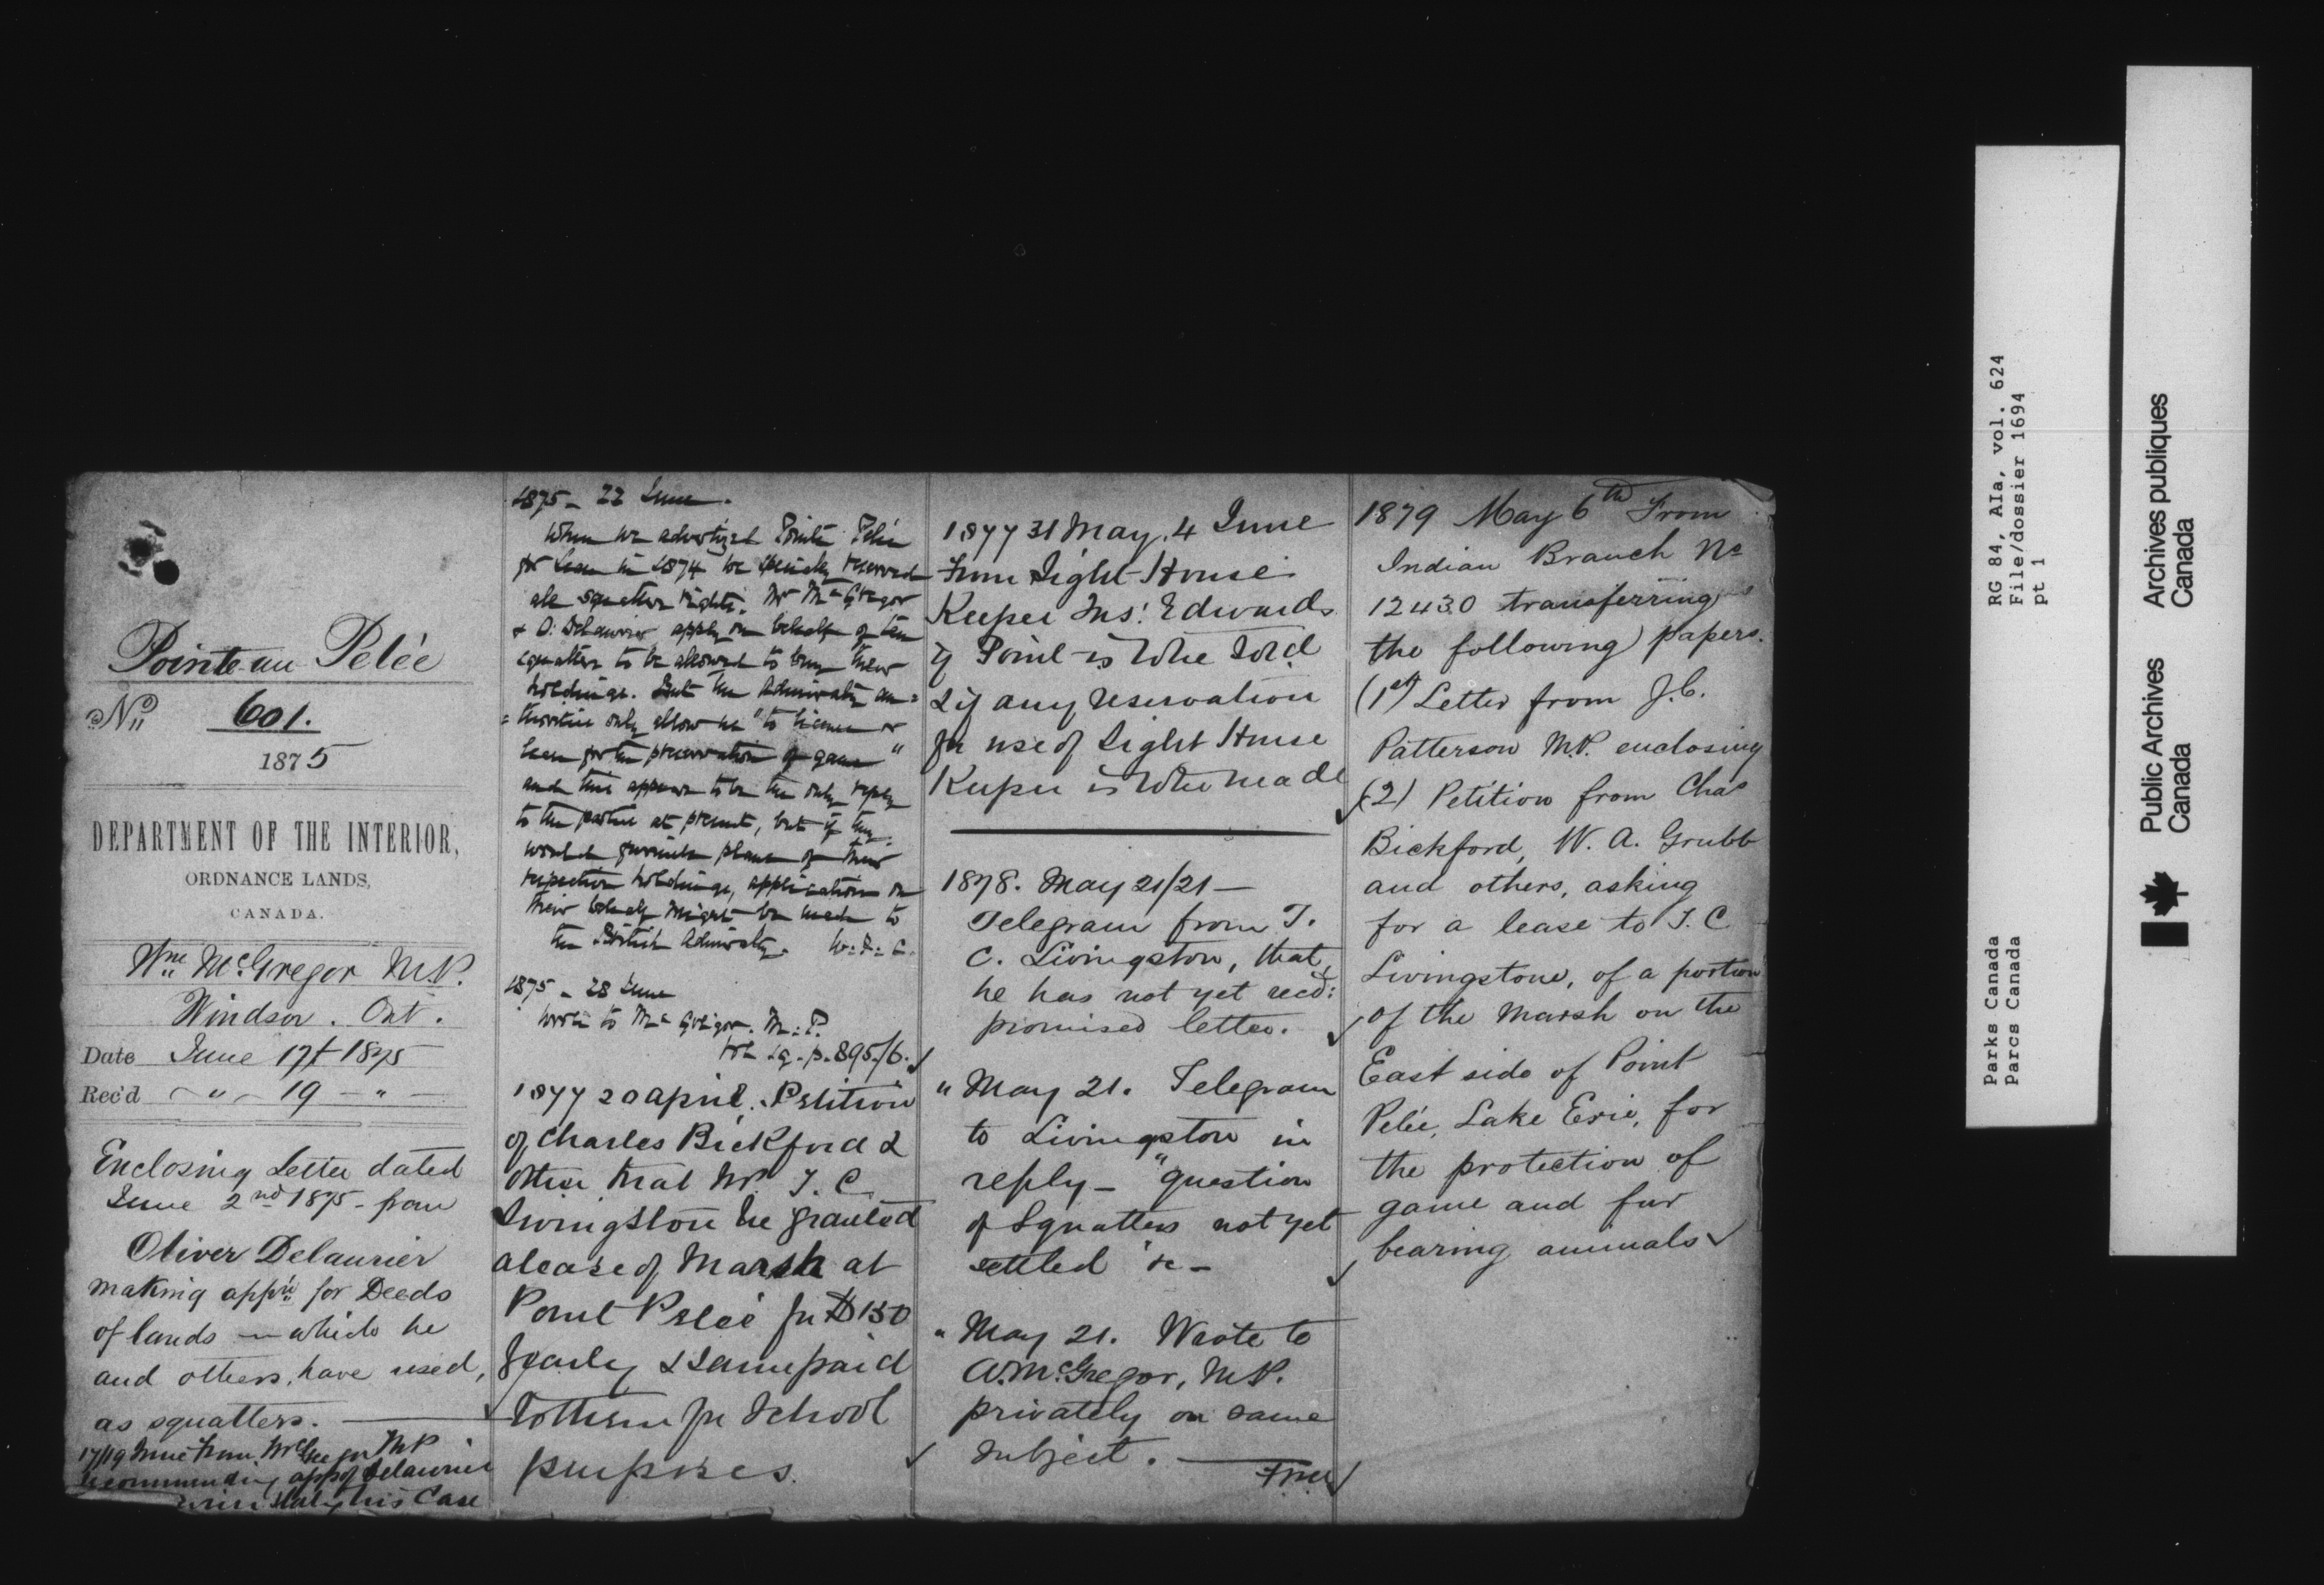 Pointe au Pelée
No 601.
1875
DEPARTMENT OF THE INTERIOR,
ORDNANCE LANDS,
CANADA.
Wm McGregor M.P.
Windsor. Ont.
Date June 17th 1875
Rec'd " 19 "
Enclosing Letter dated
June 2nd 1875 - from
Oliver Delaurier
making app'n for Deeds
of lands - which he
and others, have used,
as squatters.
17/19 June from McGregor MP
recommending app of Delaurier
his Case
1875 - 22 June.
When we advertized Pointe Pelée
for lease in 1874 we specially reserved
all squatters rights. Mr McGregor
& O. Delaurier apply on behalf of ten
squatters to be allowed to buy their
holdings. But the Admiralty au=
=thorities only allow us "to license or
lease for the preservation of game"
and this appears to be the only reply
to the parties at present, but if they
would furnish plans of their
respective holdings, application on
their behalf might be made to
the British Admiralty. W.F.C.
1875 - 28 June
Wrote to McGregor. M.P.
p. 895/6.
1877 20 April. Petition
of Charles Bickford &
others that Mr T. C.
Livingstone be granted
a lease of Marsh at
Point Pelée for $150
yearly & same paid
to them for School
purposes.
1877 31 May. 4 June
From Light House
Keeper Jas: Edwards
if Point is to be sold
& if any reservation
for use of Light House
Keeper is to be made
1878. May 21/21 -
Telegram from T.
C. Livingston, that
he has not yet recd:
promised letter.
" May 21. Telegram
to Livingston in
reply - "question
of Squatters not yet
settled" &c -
" May 21. Wrote to
W. McGregor, M.P.
privately on same
subject.
1879 May 6th From
Indian Branch No
12430 transferring
the following papers.
(1st) Letter from J.C.
Patterson M.P. enclosing
(2) Petition from Chas
Bickford, W. A. Grubb
and others, asking
for a lease to T. C
Livingstone, of a portion
of the Marsh on the
East side of Point
Pelée, Lake Erie, for
the protection of
game and fur
bearing animals
RG 84, AIa, vol. 624
File/dossier 1694
pt 1
Parks Canada
Parcs Canada
Public Archives
Canada
Archives publiques
Canada